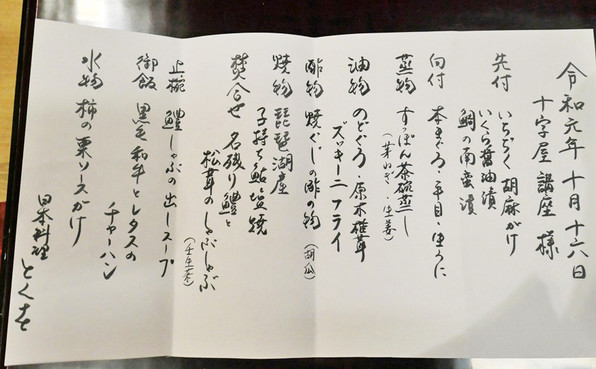 令和元年 十月 十六日
十字屋 講座 様
先付 いちぢく 胡麻がけ
いくら醤油漬
鯛の南蛮漬
向付 本まぐろ・平目・生うに
蒸物 すっぽん茶碗蒸し
(芽ねぎ・生姜)
油物 のどぐろ・原木椎茸
ズッキーニフライ
酢物 焼ぐじの酢の物
(胡瓜)
焼物 琵琶湖産
子持ち鮎塩焼
焚合せ 名残り鱧と
松茸のしゃぶしゃぶ
(壬生菜)
止椀 鱧しゃぶの出しスープ
御飯 黒毛和牛とレタスの
チャーハン
水物 柿の栗ソースがけ
日本料理 とくを